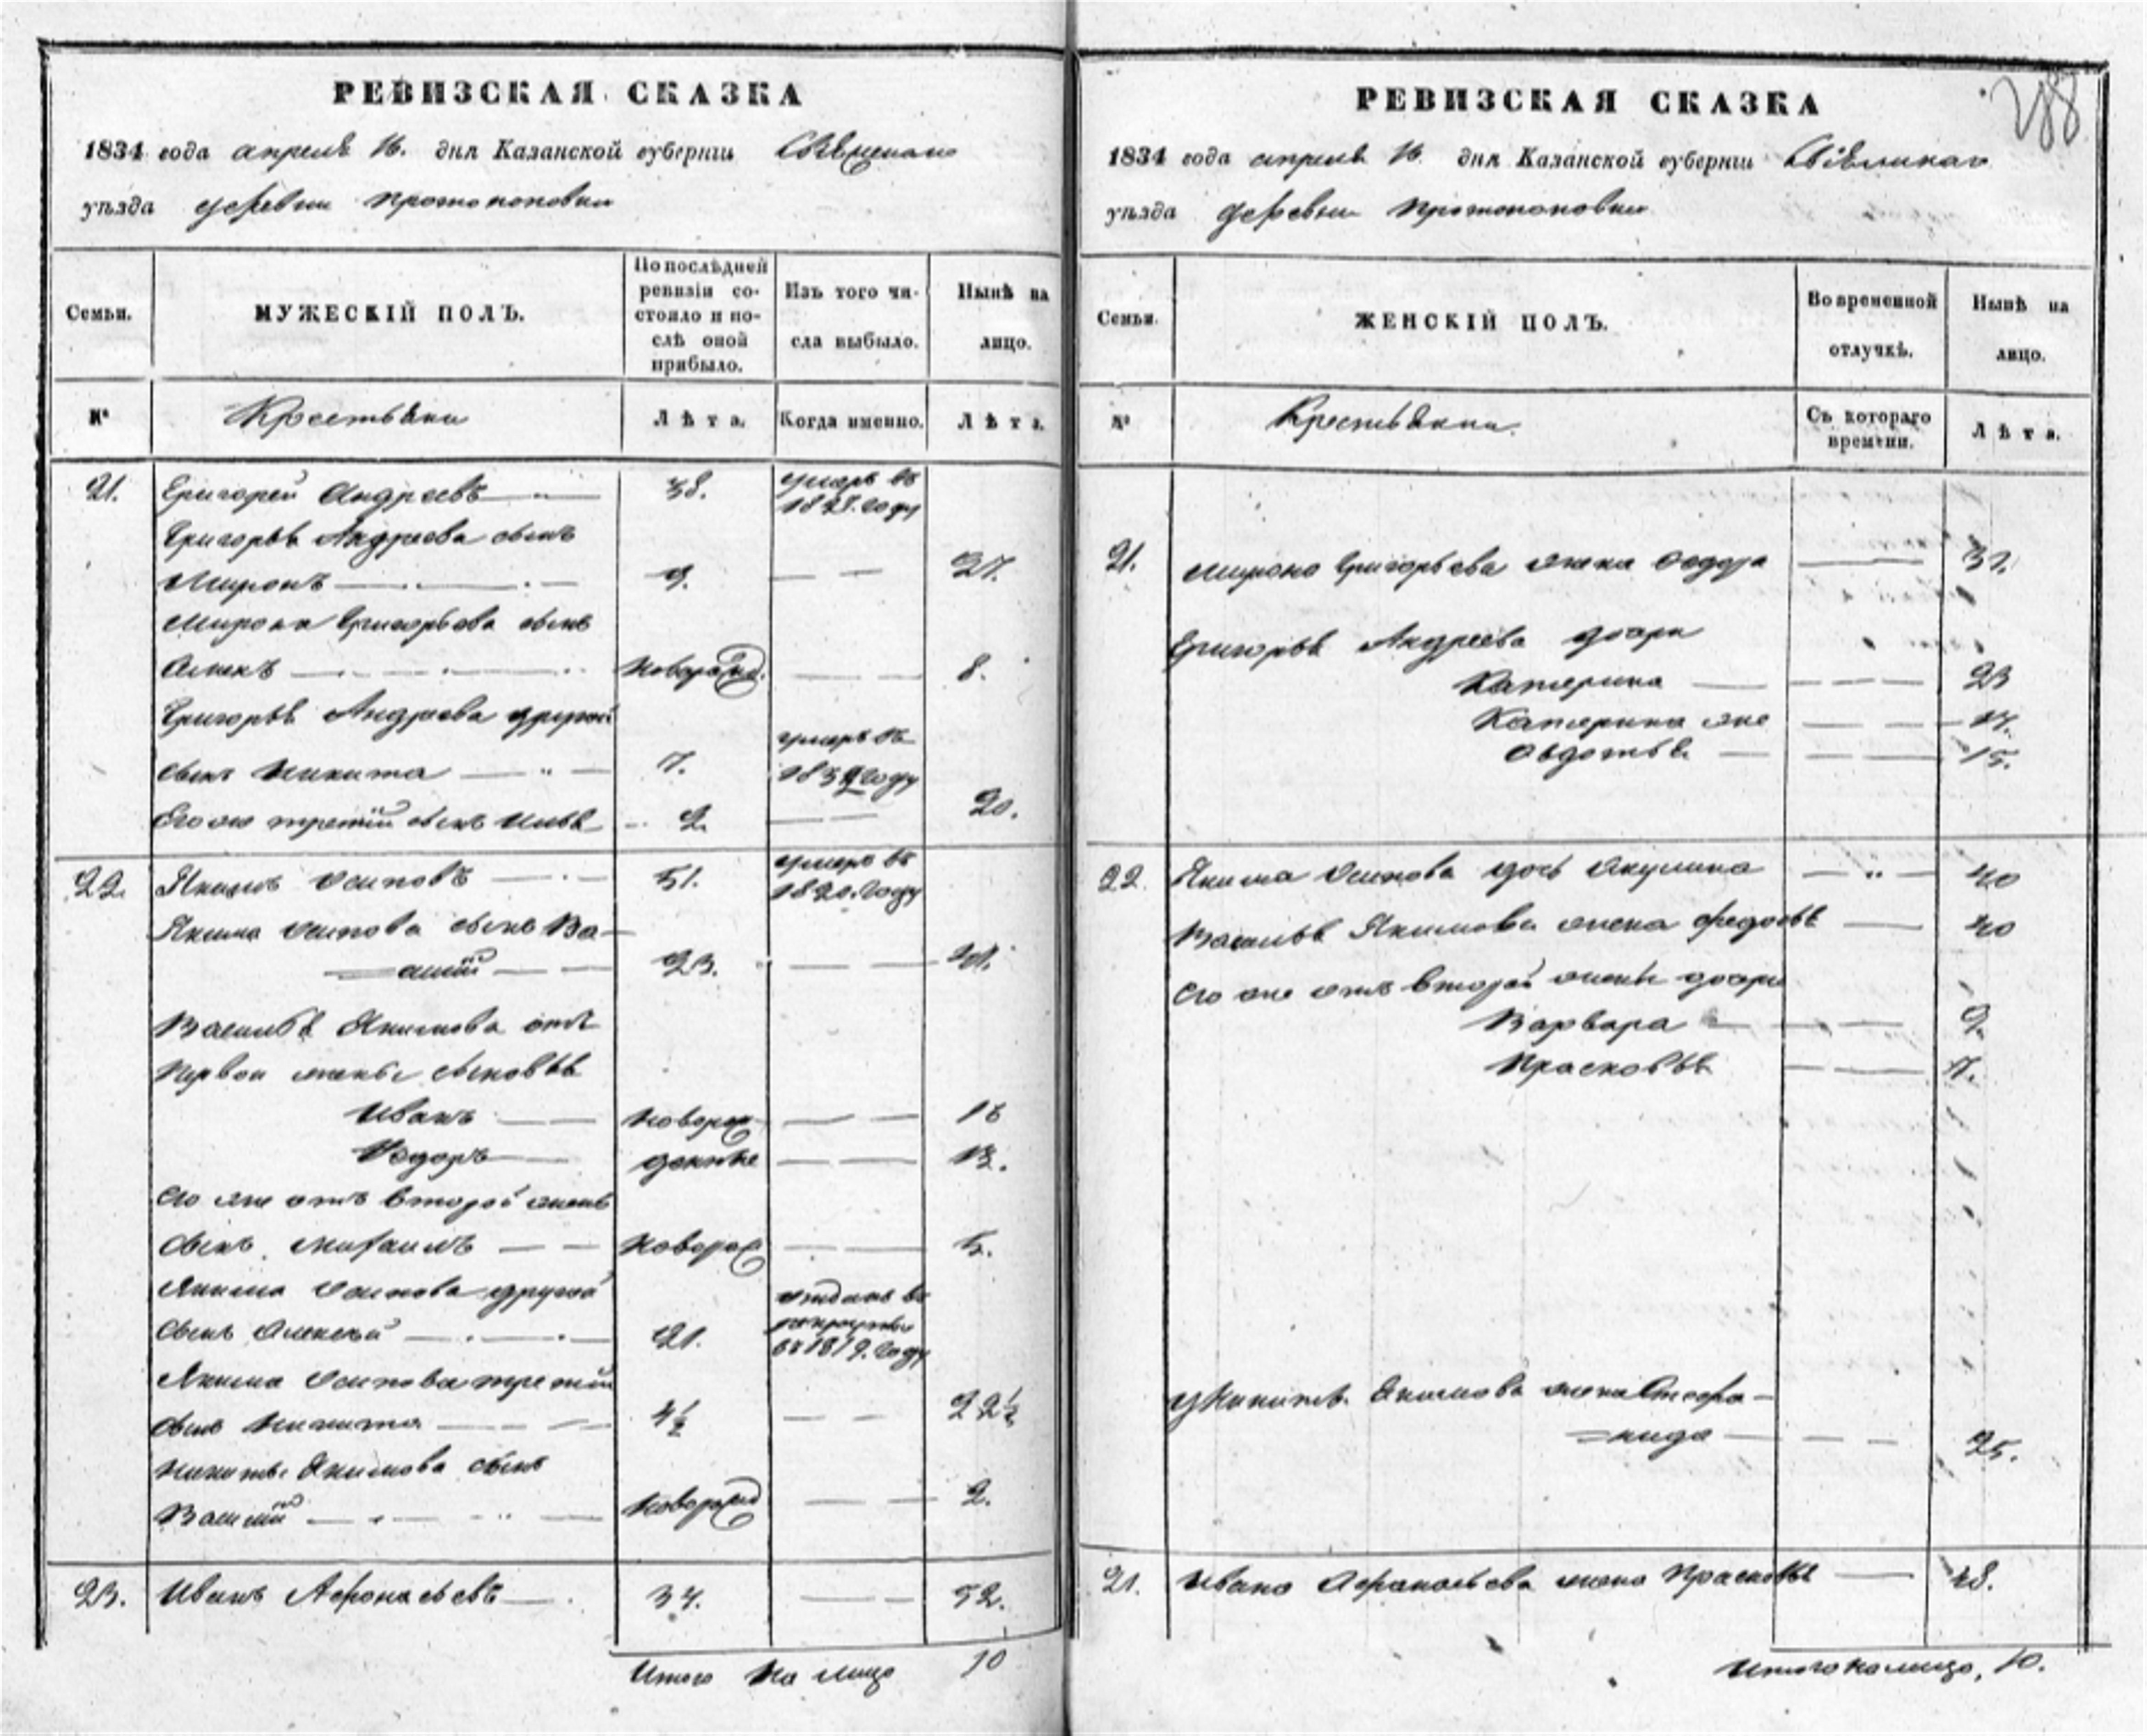 РЕВИЗСКАЯ СКАЗКА
1834 года апреля 16. дня Казанской губернии
уѣзда деревни Протопоповки
Семьи.
МУЖЕСКІЙ ПОЛЪ.
По послѣдней
ревизіи со-
стояло и по-
слѣ оной
прибыло.
Изъ того чи-
сла выбыло.
Нынѣ на
лицо.
№
Крестьяни
Лѣта.
Когда именно.
Лѣта.
21. Григорей Андреевъ 38. умеръ въ
году
Григорья Андреева сынъ
Миронъ 9. 27.
Мирона Григорьева сынъ
8.
Григорья Андреева другой
умеръ въ
сынъ Никита 7. году
Его же третій сынъ Илья 2. 20.
22. Якимъ Осиповъ 51. умеръ въ
1820. году
Якима Осипова сынъ Ва-
=силій 23. 41.
Василья Якимова отъ
первой жены сыновья
Иванъ новорож- 16
Ѳедоръ денные 13.
Его же отъ второй жены
Сынъ Михаилъ новорож 5.
Якима Осипова другой
отданъ въ
сынъ Алексѣй 21. рекруты
въ 1819. году
Якима Осипова третій
сынъ Никита 4½ 22½
Никиты Якимова сынъ
Василій новорожд 2.
23. Иванъ Афонасьевъ 34. 52.
Итого на лицо 10
288
РЕВИЗСКАЯ СКАЗКА
1834 года апреля 16 дня Казанской губернии
уѣзда деревни Протопоповки
Семьи.
ЖЕНСКІЙ ПОЛЪ.
Во временной
отлучкѣ.
Нынѣ на
лицо.
№
Крестьянки.
Съ котораго
времени.
Лѣта.
21. Мирона Григорьева жена Федора
Григорья Андреева дочери
Катерина 23
Катерина же 17.
Авдотья 15.
22. Якима Осипова дочь Акулина 40
Василья Якимова жена Федосья 40
Его же отъ второй жены дочери
Варвара 9.
Прасковья 7.
У Никиты Якимова жена Стефа-
=нида 25.
21. Ивана Афонасьева жена Прасковья 48.
Итого на лицо, 10.